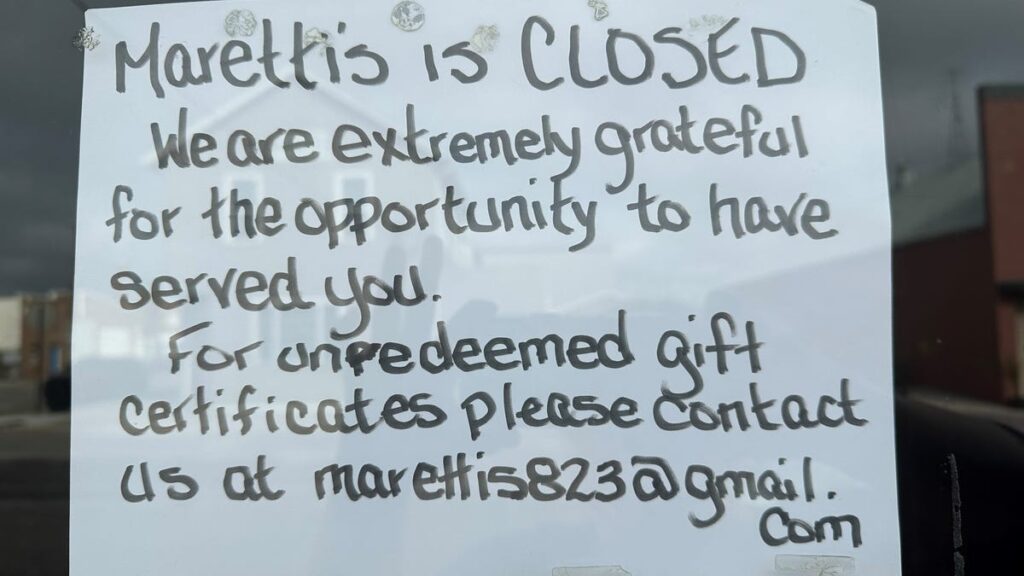 Maretti's is CLOSED
We are extremely grateful
for the opportunity to have
served you.
For unredeemed gift
certificates please contact
us at marettis823@gmail.
com